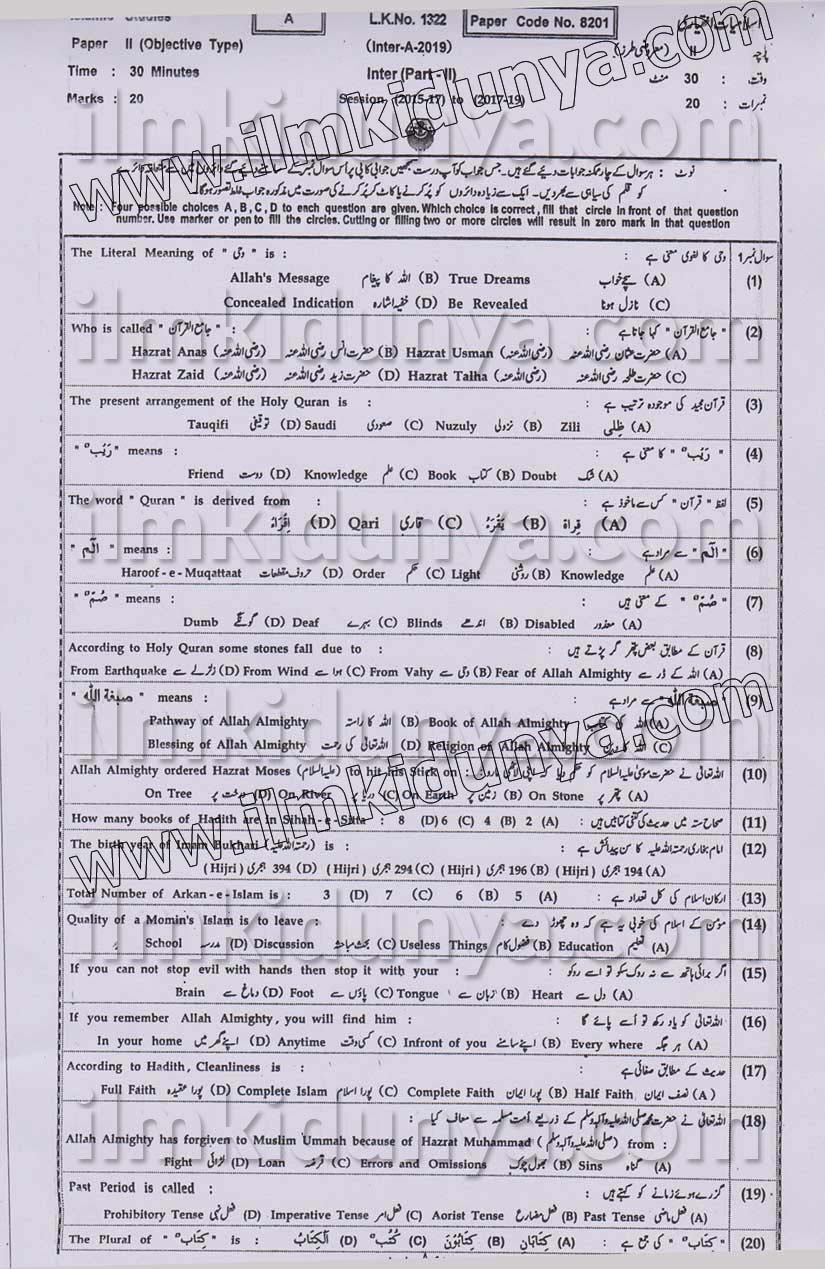 A
L.K.No. 1322
Paper Code No. 8201
Paper II (Objective Type)
(Inter-A-2019)
II
Time : 30 Minutes
Inter (Part - II)
وقت : 30 منٹ
Marks : 20
Session (2015-17) to (2017-19)
نمبرات : 20
Note : Four possible choices A, B, C, D to each question are given. Which choice is correct, fill that circle in front of that question
number. Use marker or pen to fill the circles. Cutting or filling two or more circles will result in zero mark in that question
سوال نمبر 1 وحی کا لغوی معنی ہے : The Literal Meaning of " وحی " is :
(1) (A) سچے خواب True Dreams (B) اللہ کا پیغام Allah's Message
(C) نازل ہونا Be Revealed (D) خفیہ اشارہ Concealed Indication
(2) " جامع القرآن " کہا جاتا ہے : Who is called " جامع القرآن " :
(A) حضرت عثمان رضی اللہ عنہ Hazrat Usman (رضی اللہ عنہ) (B) حضرت انس رضی اللہ عنہ Hazrat Anas (رضی اللہ عنہ)
(C) حضرت طلحہ رضی اللہ عنہ Hazrat Talha (رضی اللہ عنہ) (D) حضرت زید رضی اللہ عنہ Hazrat Zaid (رضی اللہ عنہ)
(3) قرآن مجید کی موجودہ ترتیب ہے : The present arrangement of the Holy Quran is :
(A) ظِلی Zili (B) نزولی Nuzuly (C) صعودی Saudi (D) توقیفی Tauqifi
(4) " رَیْبٌ " کا معنی ہے : " رَیْبٌ " means :
(A) شک Doubt (B) کتاب Book (C) علم Knowledge (D) دوست Friend
(5) لفظ " قرآن " کس سے ماخوذ ہے : The word " Quran " is derived from :
(A) قراۃ (B) یُقْرَءُ (C) قاری Qari (D) اِقْرَاءُ
(6) " الٓمٓ " سے مراد ہے : " الٓمٓ " means :
(A) علم Knowledge (B) روشنی Light (C) حکم Order (D) حروف مقطعات Haroof - e - Muqattaat
(7) " صُمٌّ " کے معنی ہیں : " صُمٌّ " means :
(A) معذور Disabled (B) اندھے Blinds (C) بہرے Deaf (D) گونگے Dumb
(8) قرآن کے مطابق بعض پتھر گر پڑتے ہیں : According to Holy Quran some stones fall due to :
(A) اللہ کے ڈر سے Fear of Allah Almighty (B) وحی سے From Vahy (C) ہوا سے From Wind (D) زلزلے سے From Earthquake
(9) " صبغۃ اللہ " سے مراد ہے : " صبغۃ اللہ " means :
(A) اللہ کی کتاب Book of Allah Almighty (B) اللہ کا راستہ Pathway of Allah Almighty
(C) اللہ کا دین Religion of Allah Almighty (D) اللہ تعالیٰ کی رحمت Blessing of Allah Almighty
(10) اللہ تعالیٰ نے حضرت موسیٰ علیہ السلام کو حکم دیا کہ اپنی لاٹھی مارو : Allah Almighty ordered Hazrat Moses (علیہ السلام) to hit his Stick on :
(A) پتھر پر On Stone (B) زمین پر On Earth (C) دریا پر On River (D) درخت پر On Tree
(11) صحاح ستہ میں حدیث کی کتنی کتابیں ہیں : How many books of Hadith are in Sihah - e - Sitta : (A) 2 (B) 4 (C) 6 (D) 8
(12) امام بخاری رحمتہ اللہ علیہ کا سن پیدائش ہے : The birth year of Imam Bukhari (رحمتہ اللہ علیہ) is :
(A) 194 ہجری (Hijri) (B) 196 ہجری (Hijri) (C) 294 ہجری (Hijri) (D) 394 ہجری (Hijri)
(13) ارکان اسلام کی کل تعداد ہے : Total Number of Arkan - e - Islam is : (A) 5 (B) 6 (C) 7 (D) 3
(14) مومن کے اسلام کی خوبی یہ ہے کہ وہ چھوڑ دے : Quality of a Momin's Islam is to leave :
(A) تعلیم Education (B) فضول کام Useless Things (C) بحث مباحثہ Discussion (D) مدرسہ School
(15) اگر برائی ہاتھ سے نہ روک سکو تو اسے روکو : If you can not stop evil with hands then stop it with your :
(A) دل سے Heart (B) زبان سے Tongue (C) پاؤں سے Foot (D) دماغ سے Brain
(16) اللہ تعالیٰ کو یاد رکھ تو اُسے پائے گا : If you remember Allah Almighty, you will find him :
(A) ہر جگہ Every where (B) اپنے سامنے Infront of you (C) کسی وقت Anytime (D) اپنے گھر میں In your home
(17) حدیث کے مطابق صفائی ہے : According to Hadith, Cleanliness is :
(A) نصف ایمان Half Faith (B) پورا ایمان Complete Faith (C) پورا اسلام Complete Islam (D) پورا عقیدہ Full Faith
(18) اللہ تعالیٰ نے حضرت محمد صلی اللہ علیہ وآلہ وسلم کے ذریعے اُمت مسلمہ سے معاف کیا :
Allah Almighty has forgiven to Muslim Ummah because of Hazrat Muhammad (صلی اللہ علیہ وآلہ وسلم) from :
(A) گناہ Sins (B) بھول چوک Errors and Omissions (C) قرضہ Loan (D) لڑائی Fight
(19) گزرے ہوئے زمانے کو کہتے ہیں : Past Period is called :
(A) فعل ماضی Past Tense (B) فعل مضارع Aorist Tense (C) فعل امر Imperative Tense (D) فعل نہی Prohibitory Tense
(20) " کِتَابٌ " کی جمع ہے : The Plural of " کِتَابٌ " is : (A) کِتَابَانِ (B) کِتَابُوْنَ (C) کُتُبٌ (D) اَلْکِتَابُ
www.ilmkidunya.com
www.ilmkidunya.com
ilmkidunya.com
ilmkidunya.com
ilmkidunya.com
ilmkidunya.com
ilmkidunya.com
ilmkidunya.com